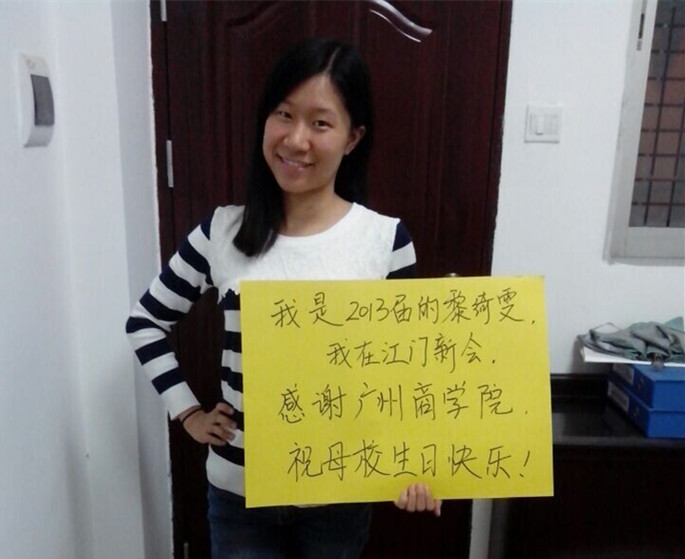 我是2013届的黎绮雯,
我在江门新会.
感谢广州商学院.
祝母校生日快乐!